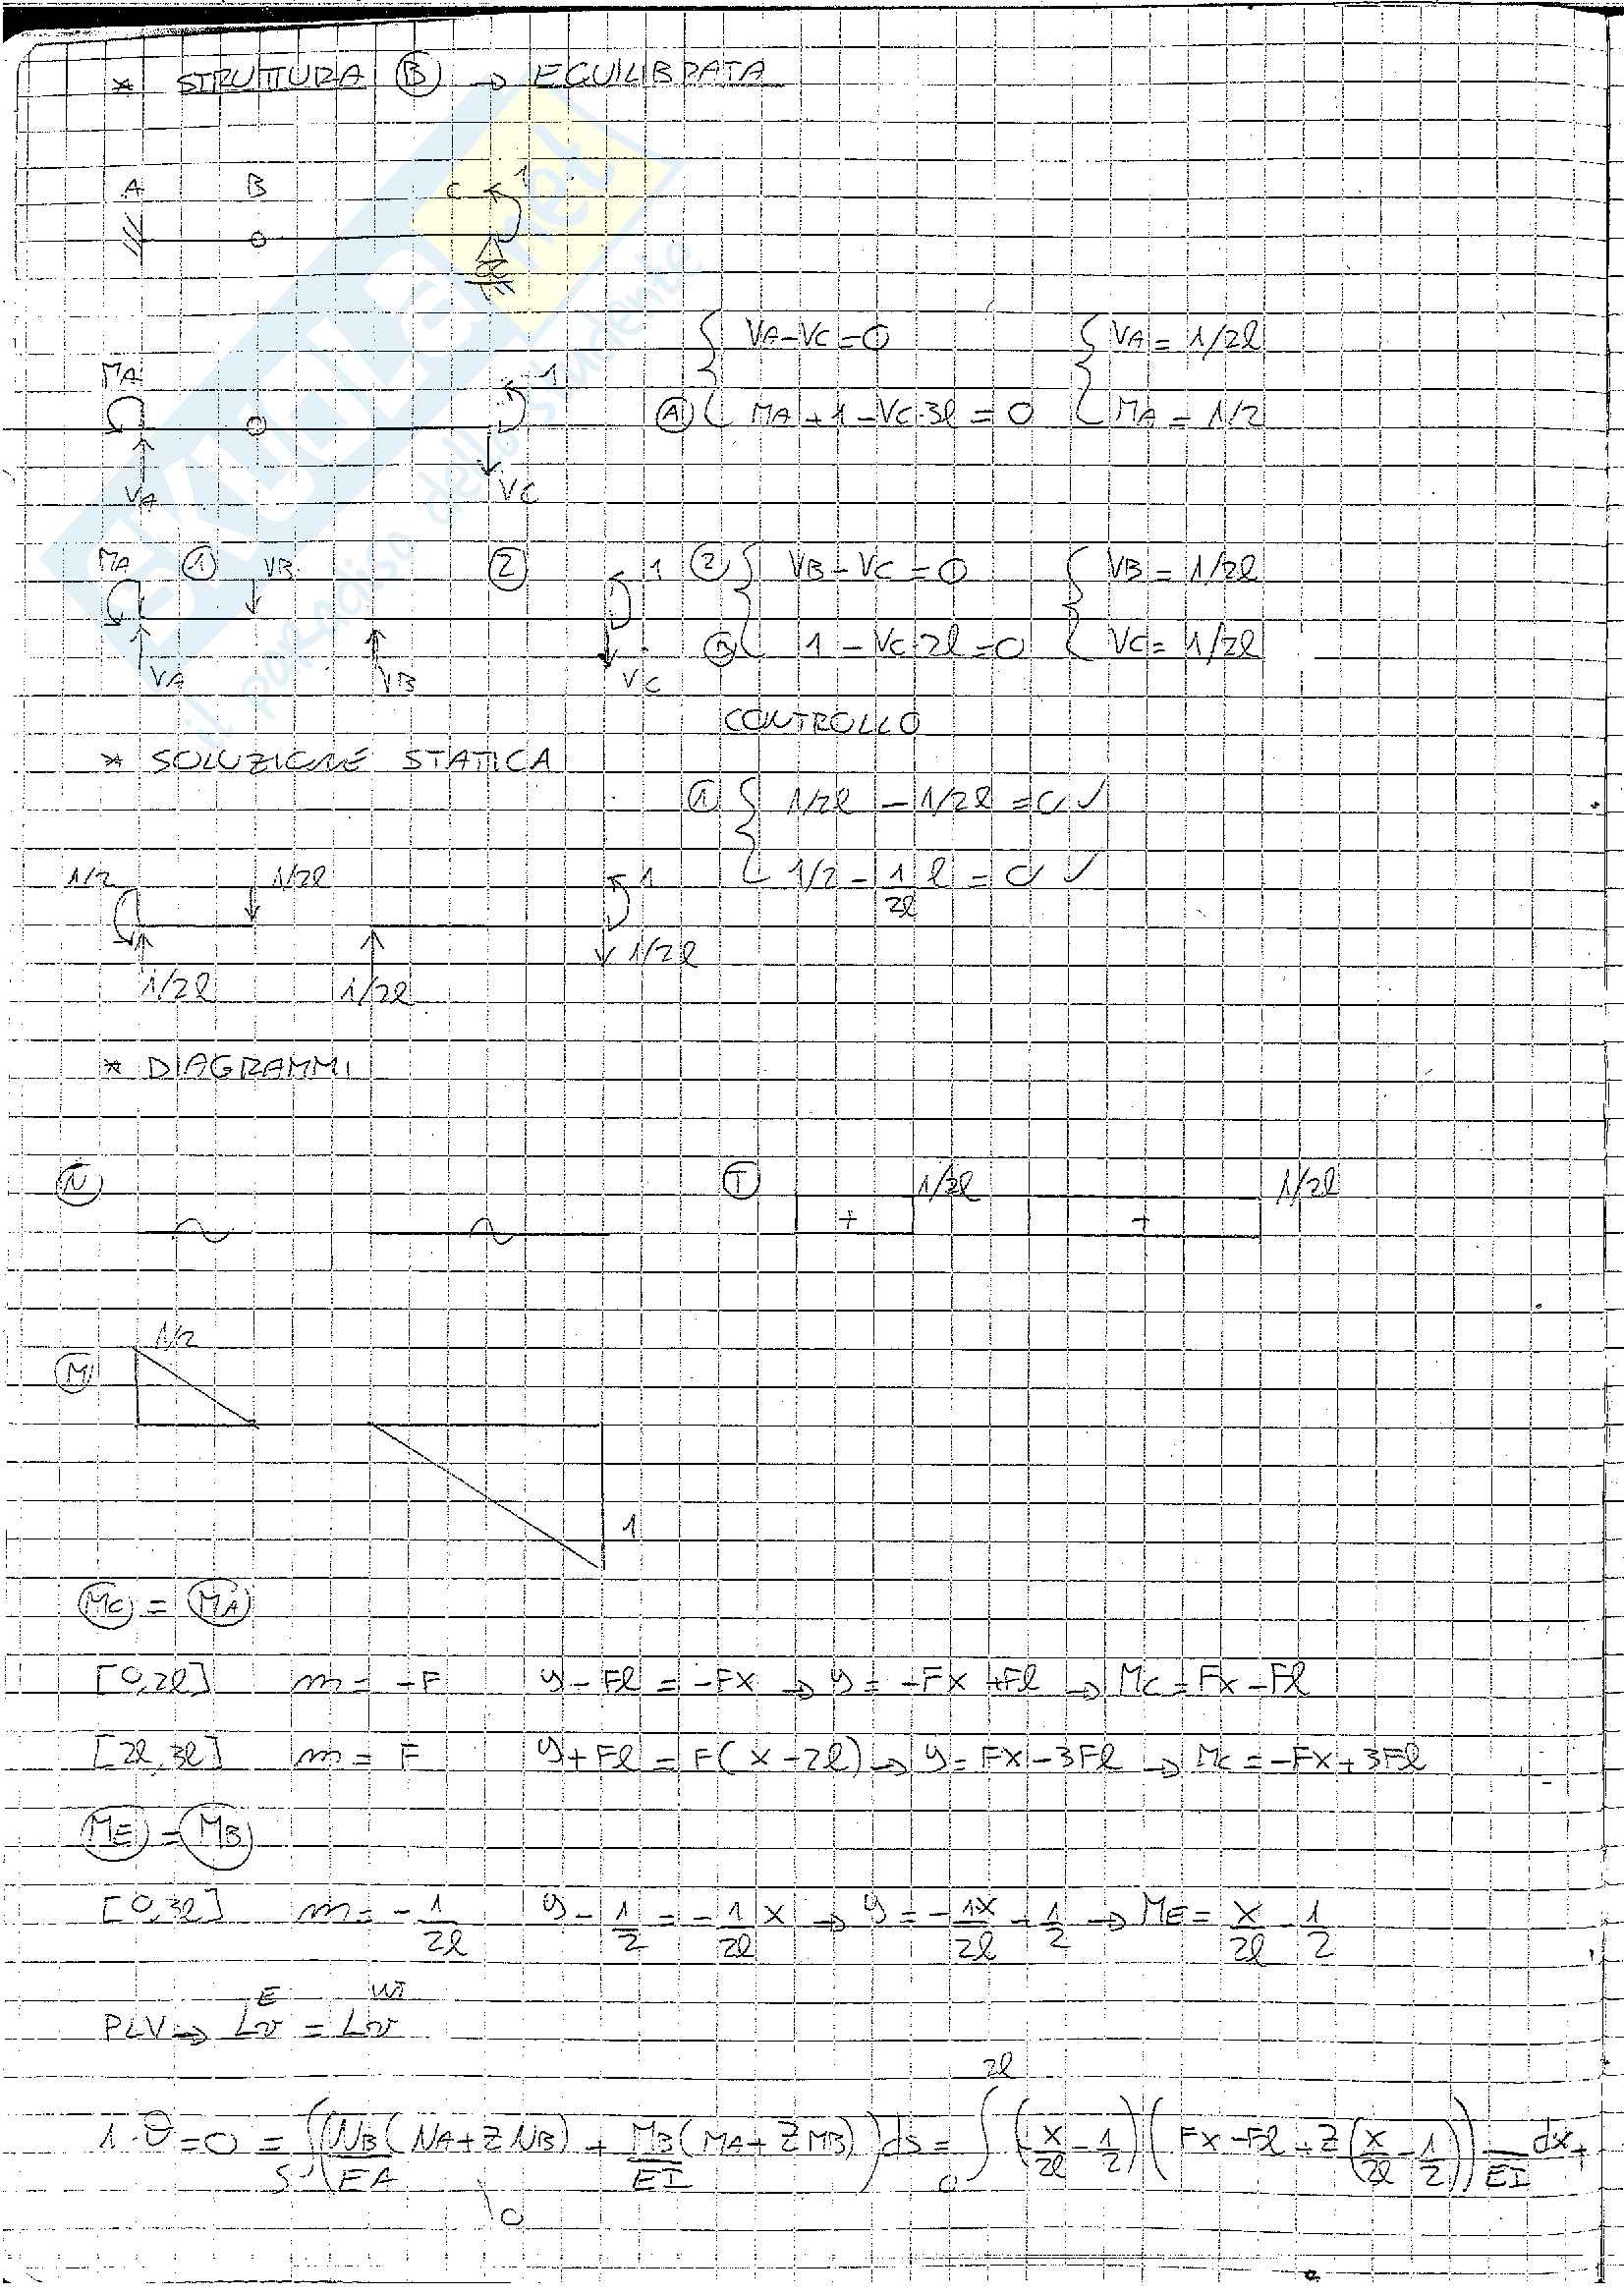 * STRUTTURA (B) → EQUILIBRATA
A B C 1
VA-VC=0 VA = 1/2l
MA 1 (A) MA + 1 - VC·3l = 0 MA = 1/2
VA VC
MA (1) VB (2) 1 (2) VB - VC = 0 VB = 1/2l
(B) 1 - VC·2l = 0 VC = 1/2l
VA VB VC
CONTROLLO
* SOLUZIONE STATICA
(1) 1/2l - 1/2l = 0 ✓
1/2 1/2l 1 1/2 - 1/2l l = 0 ✓
1/2l 1/2l 1/2l
* DIAGRAMMI
(N) (T) 1/2l 1/2l
+ +
1/2
(M)
1
(MC) = (MA)
[0,2l] m = -F y - Fl = -Fx → y = -Fx + Fl → MC = Fx - Fl
[2l,3l] m = F y + Fl = F(x - 2l) → y = Fx - 3Fl → MC = -Fx + 3Fl
(ME) = (MB)
[0,3l] m = -1/2l y - 1/2 = -1/2l x → y = -1x/2l + 1/2 → ME = x/2l - 1/2
E WT
PLV → Lv = Lv
1·θ = 0 = ∫S (NB(NA+ZNB)/EA + MB(MA+ZMB)/EI) ds = ∫0 2l (x/2l - 1/2)(Fx - Fl + Z(x/2l - 1/2)) 1/EI dx +
0